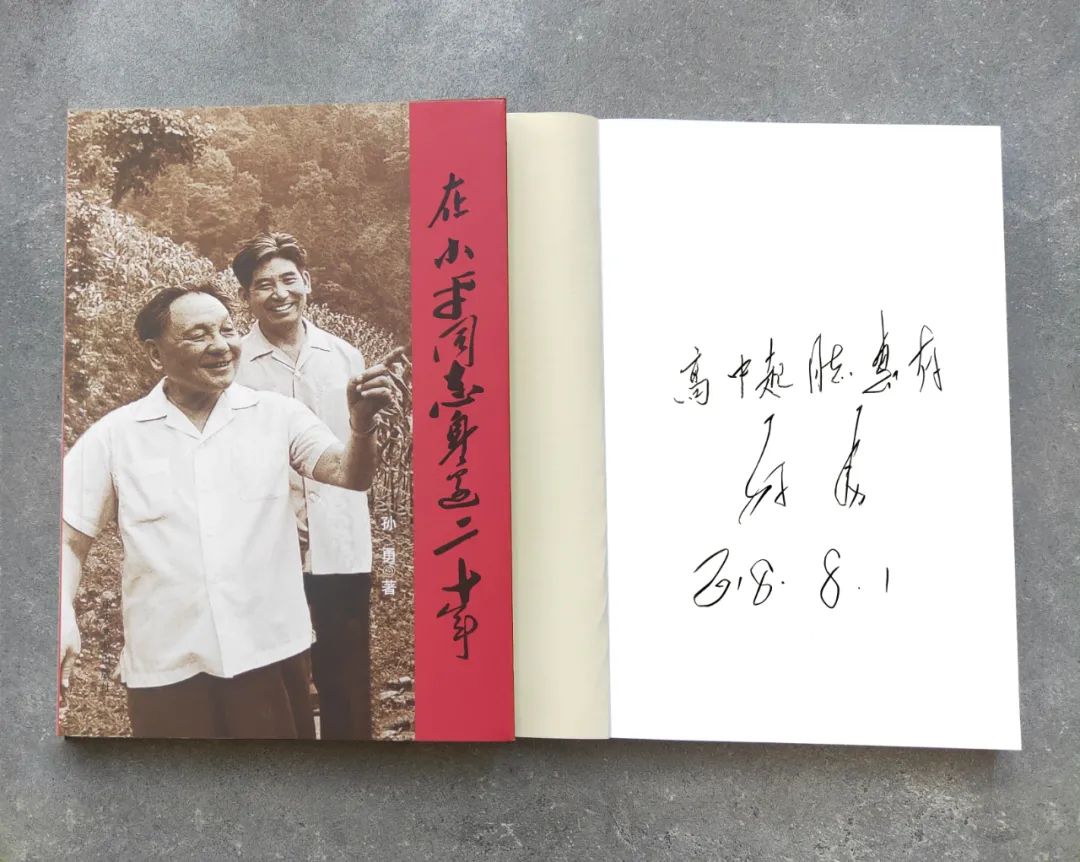 在小平同志身边二十年
孙勇 著
高中起同志惠存
孙勇
2018.8.1